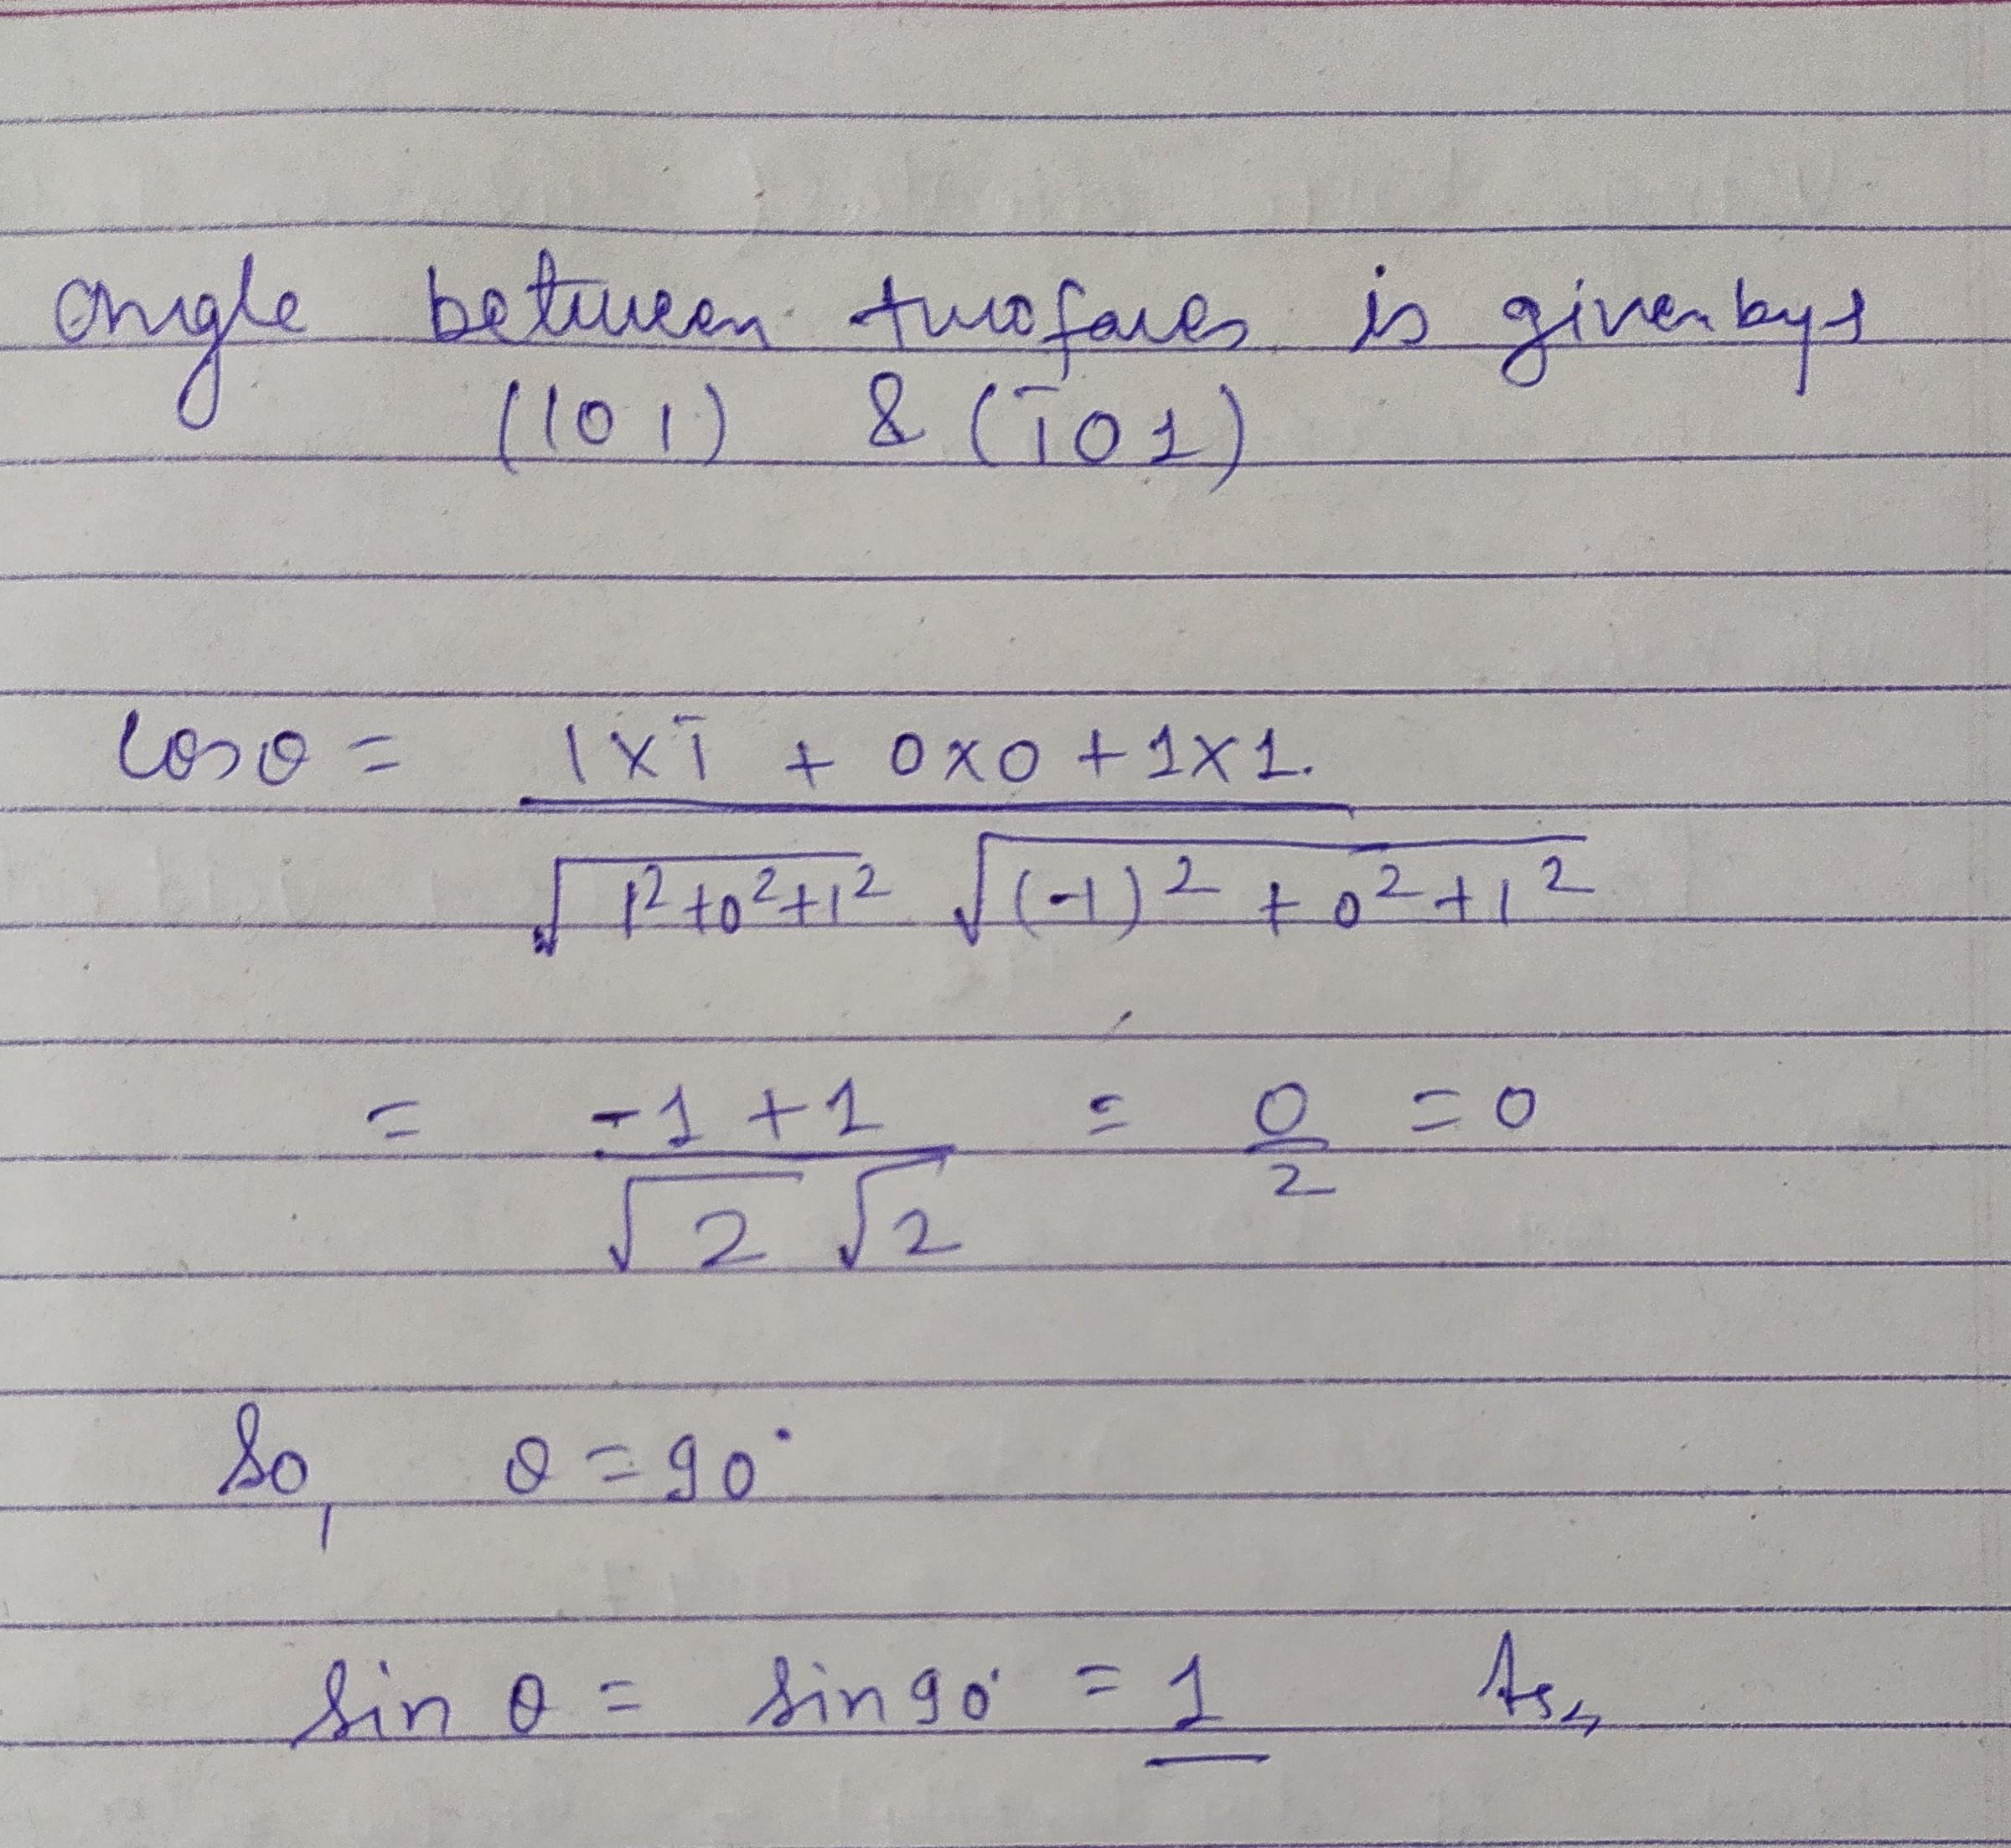 angle between two faces is given by
(101) & (1̄01)
cosθ = 1×1̄ + 0×0 + 1×1.
√1²+0²+1² √(-1)² + 0²+1²
= -1+1 = 0 = 0
√2 √2 2
So, θ = 90°
sin θ = sin 90° = 1